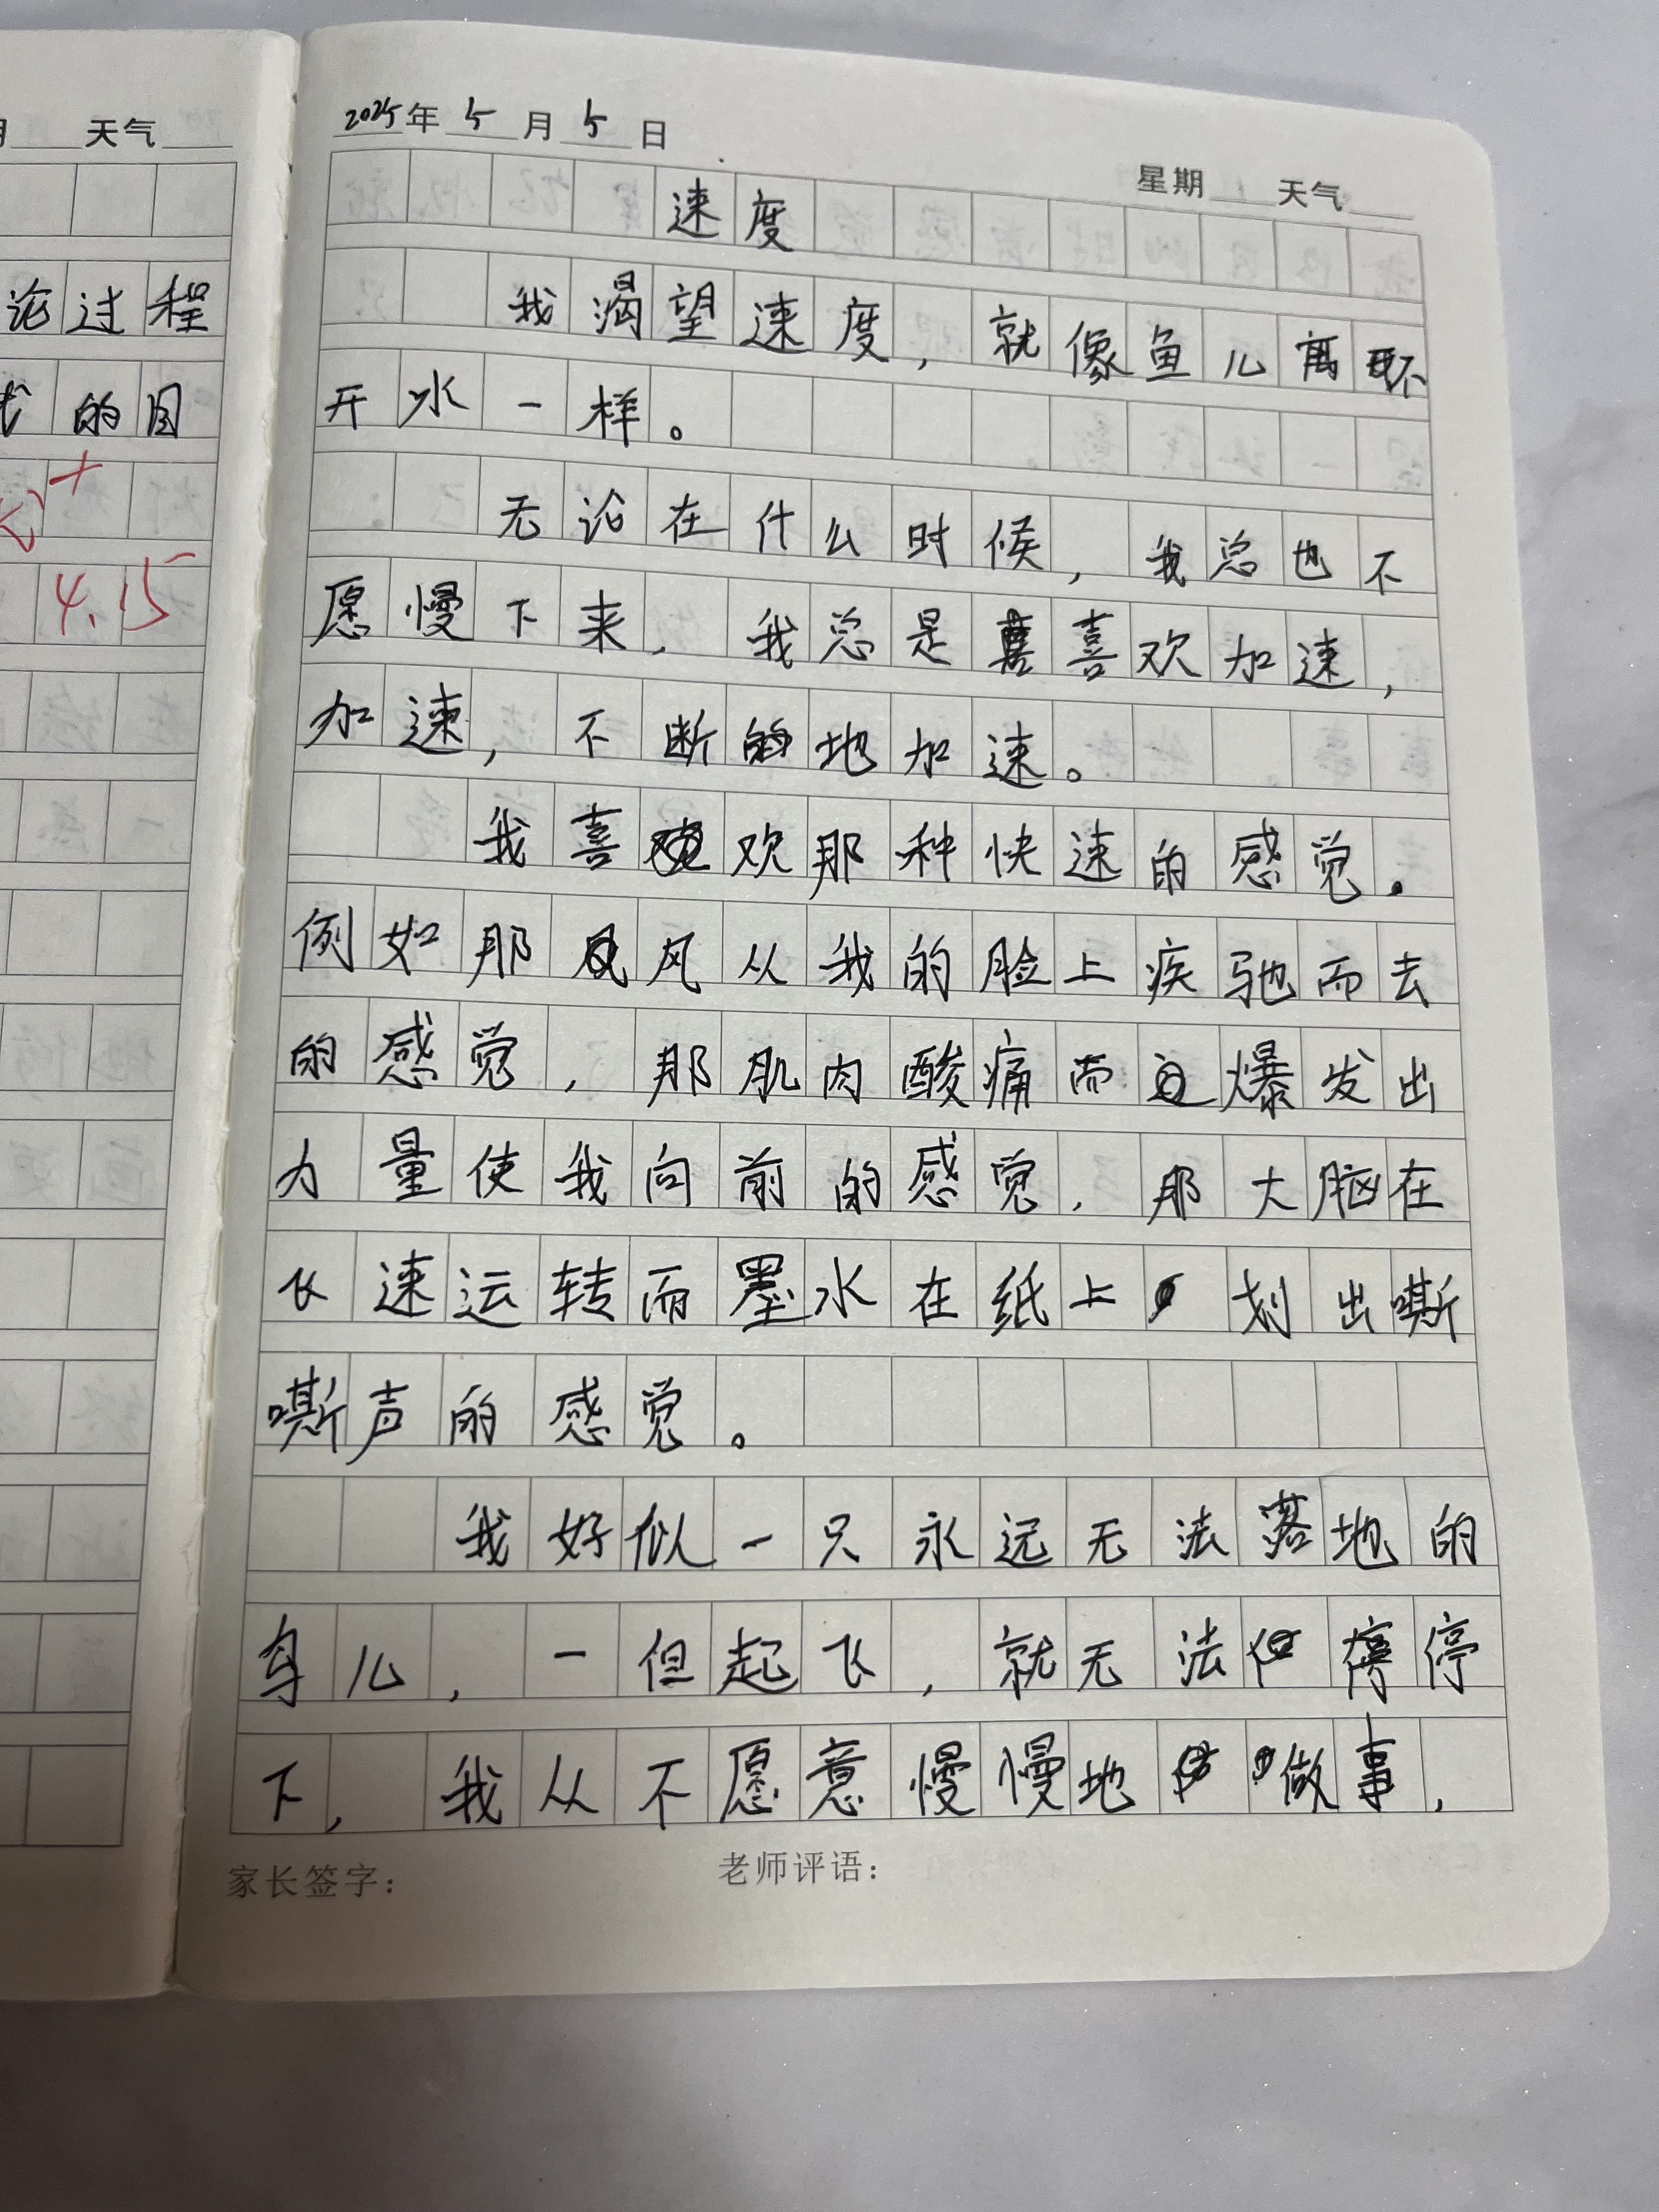 期 天气
论过程
的目
4.15
2025年5月5日
星期 天气
速度
我渴望速度，就像鱼儿离不
开水一样。
无论在什么时候，我总也不
愿慢下来，我总是喜欢加速，
加速，不断地加速。
我喜欢那种快速的感觉。
例如那风从我的脸上疾驰而去
的感觉，那肌肉酸痛而爆发出
力量使我向前的感觉，那大脑在
飞速运转而墨水在纸上划出嘶
嘶声的感觉。
我好似一只永远无法落地的
鸟儿，一但起飞，就无法停
下，我从不愿意慢慢地做事，
家长签字：
老师评语：